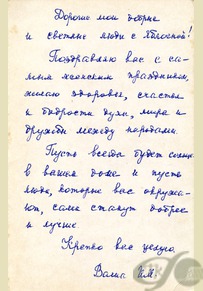 Дорогие мои добрые
и светлые люди с Яблочной!
Поздравляю вас с са-
мым женским праздником,
желаю здоровья, счастья
и бодрости духа, мира и
дружбы между народами.
Пусть всегда будет солнце
в вашем доме и пусть
люди, которые вас окружа-
ют, сами станут добрее
и лучше
Крепко вас целую.
Ваша